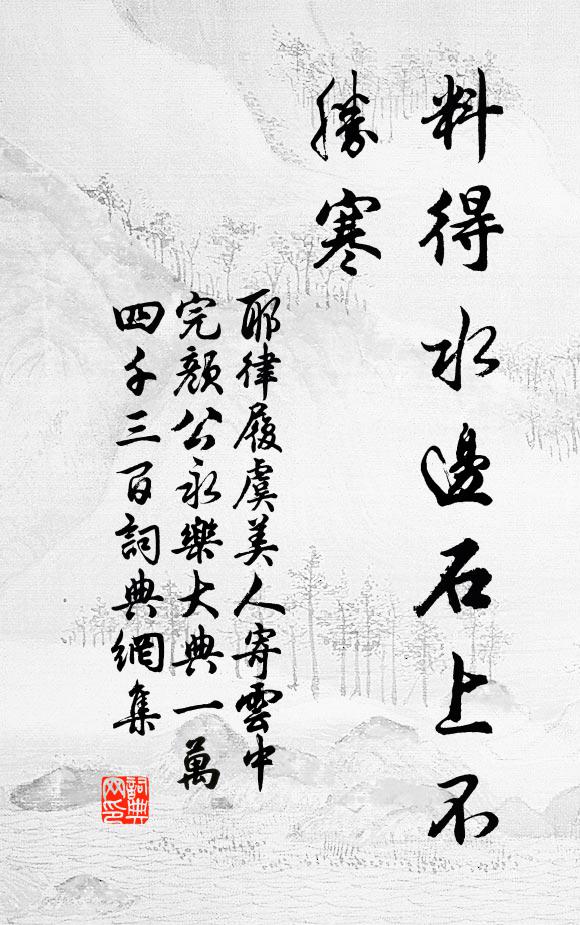 料得水邊石上不
勝寒
耶律履虞美人寄雲中
完顏公永樂大典一萬
四千三百詞典網集
詞典网印